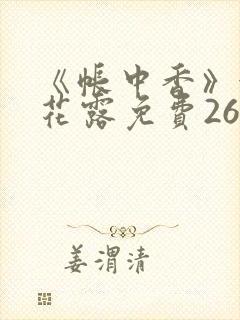 《帐中香》
花露免費26
姜渭清